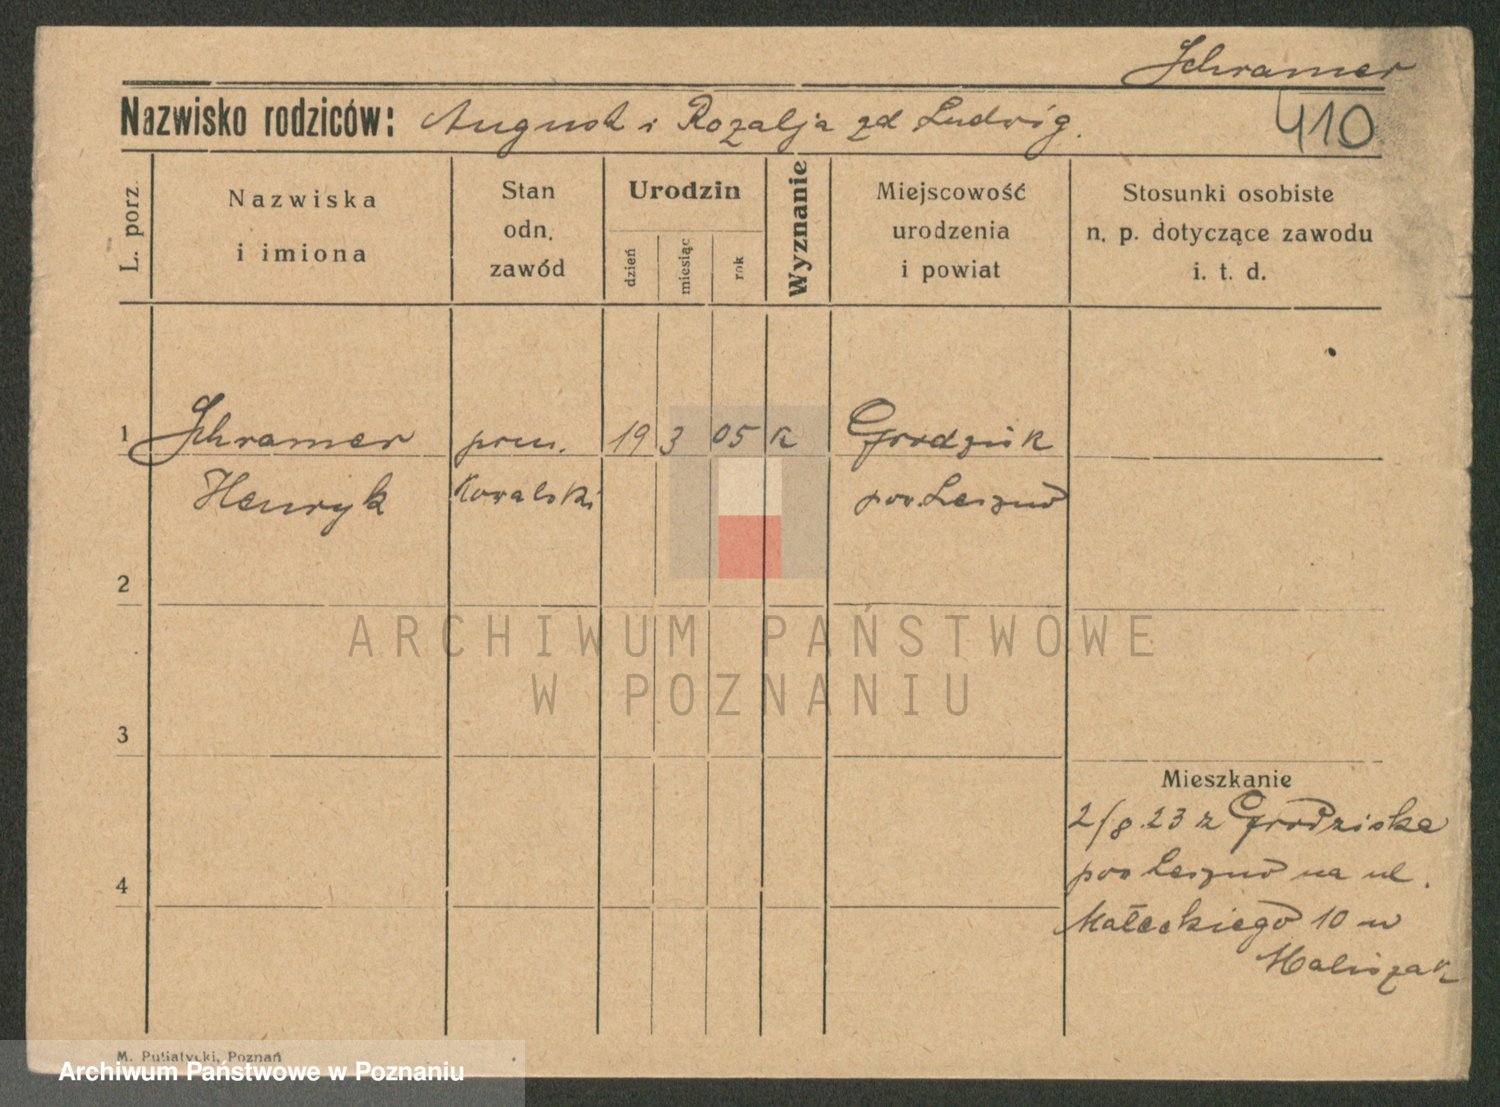 Schramer
Nazwisko rodziców: August i Rozalja zd Ludwig.
410
L. porz.
Nazwiska
i imiona
Stan
odn.
zawód
Urodzin
dzień
miesiąc
rok
Wyznanie
Miejscowość
urodzenia
i powiat
Stosunki osobiste
n. p. dotyczące zawodu
i. t. d.
1 Schramer pom. 19 3 05 K Grodzisk
Henryk Kowalski pow. Leszno
2
3
4
ARCHIWUM PAŃSTWOWE
W POZNANIU
Mieszkanie
2/8.23 z Grodziska
pow Leszno na ul.
Małeckiego 10 u
M. Putiatycki, Poznań
Archiwum Państwowe w Poznaniu